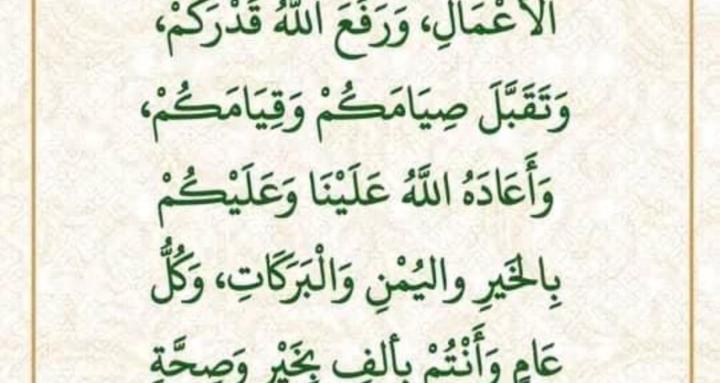 الْأَعْمَالِ، وَرَفَعَ اللَّهُ قَدْرَكُمْ،
وَتَقَبَّلَ صِيَامَكُمْ وَقِيَامَكُمْ،
وَأَعَادَهُ اللَّهُ عَلَيْنَا وَعَلَيْكُمْ
بِالخَيرِ واليُمْنِ وَالْبَرَكَاتِ، وَكُلُّ
عَامٍ وَأَنْتُمْ بِأَلفِ بِخَيْرٍ وَصِحَّةٍ